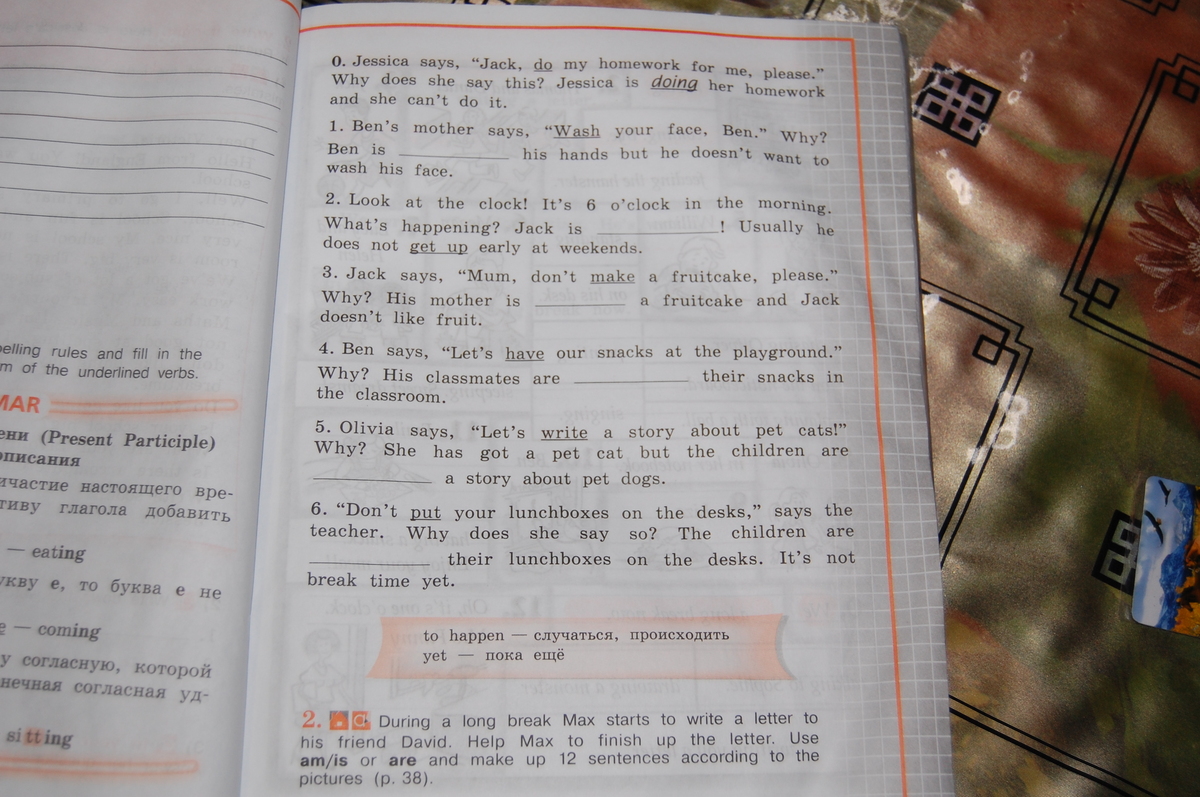 elling rules and fill in the
m of the underlined verbs.
MAR
ени (Present Participle)
описания
ичастие настоящего вре-
тиву глагола добавить
— eating
укву е, то буква е не
e — coming
у согласную, которой
нечная согласная уд-
sitting
0. Jessica says, “Jack, do my homework for me, please.”
Why does she say this? Jessica is doing her homework
and she can’t do it.
1. Ben’s mother says, “Wash your face, Ben.” Why?
Ben is ____________ his hands but he doesn’t want to
wash his face.
2. Look at the clock! It’s 6 o’clock in the morning.
What’s happening? Jack is ____________! Usually he
does not get up early at weekends.
3. Jack says, “Mum, don’t make a fruitcake, please.”
Why? His mother is _________ a fruitcake and Jack
doesn’t like fruit.
4. Ben says, “Let’s have our snacks at the playground.”
Why? His classmates are ____________ their snacks in
the classroom.
5. Olivia says, “Let’s write a story about pet cats!”
Why? She has got a pet cat but the children are
____________ a story about pet dogs.
6. “Don’t put your lunchboxes on the desks,” says the
teacher. Why does she say so? The children are
____________ their lunchboxes on the desks. It’s not
break time yet.
to happen — случаться, происходить
yet — пока ещё
2. During a long break Max starts to write a letter to
his friend David. Help Max to finish up the letter. Use
am/is or are and make up 12 sentences according to the
pictures (p. 38).